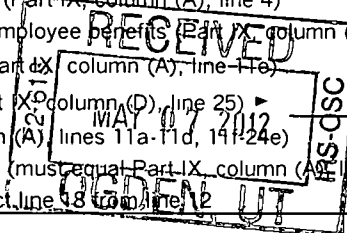 (Part IX, column (A), line 4)
employee benefits (Part IX, column (
Part IX column (A), line 11e)
IX, column (D), line 25) ►
(A), lines 11a-11d, 11f-24e)
(must equal Part IX, column (A),
ct line 18 from line 12
RECEIVED
MAY 07 2012
IRS-OSC
OGDEN, UT